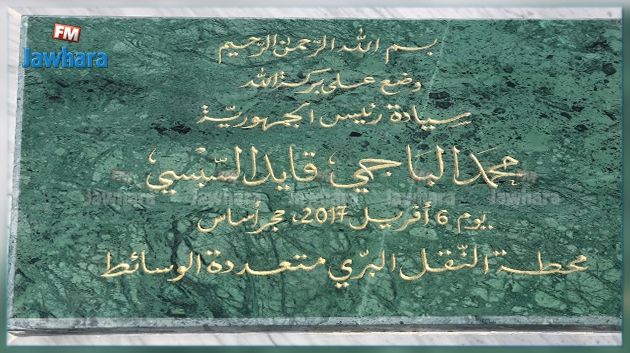 FM
Jawhara
بسم الله الرحمن الرحيم
وضع على بركة الله
سيادة رئيس الجمهوريّة
محمد الباجي قايد السّبسي
يوم 6 أفريل 2017، حجر أساس
محطة النّقل البرّي متعددة الوسائط